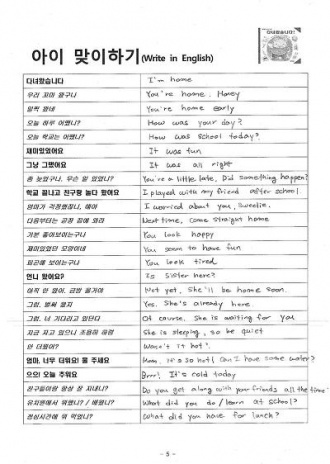 아이 맞이하기(Write in English)
다녀왔습니다 I'm home
우리 꼬마 왔구나 You're home. Honey
일찍 왔네 You're home early
오늘 하루 어땠니? How was your day?
오늘 학교는 어땠니? How was school today?
재미있었어요 It was fun
그냥 그랬어요 It was all right
좀 늦었구나, 무슨 일 있었니? You're a little late, Did something happen?
학교 끝나고 친구랑 놀다 왔어요 I played with my friend after school.
엄마가 걱정했잖니, 얘야 I worried about you, sweetie.
다음부터는 곧장 집에 와라 Next time, come straight home
기분 좋아보이는구나 You look happy
재미있었던 모양이네 You seem to have fun
피곤해 보이는구나 You look tired
언니 왔어요? Is sister here?
아직 안 왔어, 금방 올거야 Not yet. She'll be home soon.
그럼, 벌써 왔지 Yes. She's already here
그럼, 너 기다리고 있단다 Of course. She is waiting for you
지금 자고 있으니 조용히 해줘 She is sleeping, so be quiet
안 더웠어? Wasn't it hot?
엄마, 너무 더워요! 물 주세요 Mom, it's so hot! Can I have some water?
으으! 오늘 추워요 Brrr! It's cold today
친구들이랑 항상 잘 지내니? Do you get along with your friends all the time?
유치원에서 뭐했니? / 배웠니? What did you do / learn at school?
점심시간에 뭐 먹었니? What did you have for lunch?
- 5 -